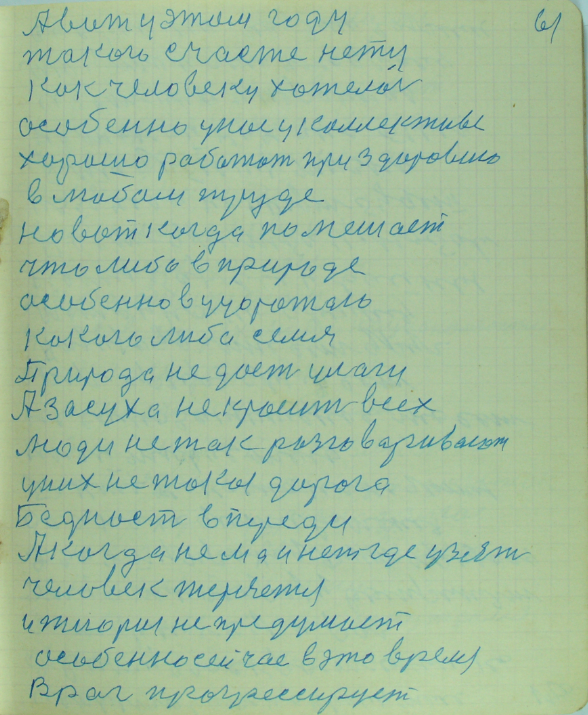 А вот у этом году 61
такого счасте нету
как человеку хотелос
особенно у нас у коллективе
хорошо работат при здоровию
в любом труде
но вот когда помешает
что либо в природе
особенно в
какого либа семя
Природа не дает улаги
А засуха не кроит всех
люди не так разговаривают
у них не такая дорога
Бедност впереди
А когда нема и нет где узят
человек теряетя
и не предумает
особенно сейчас в это время
Враг прогрессирует